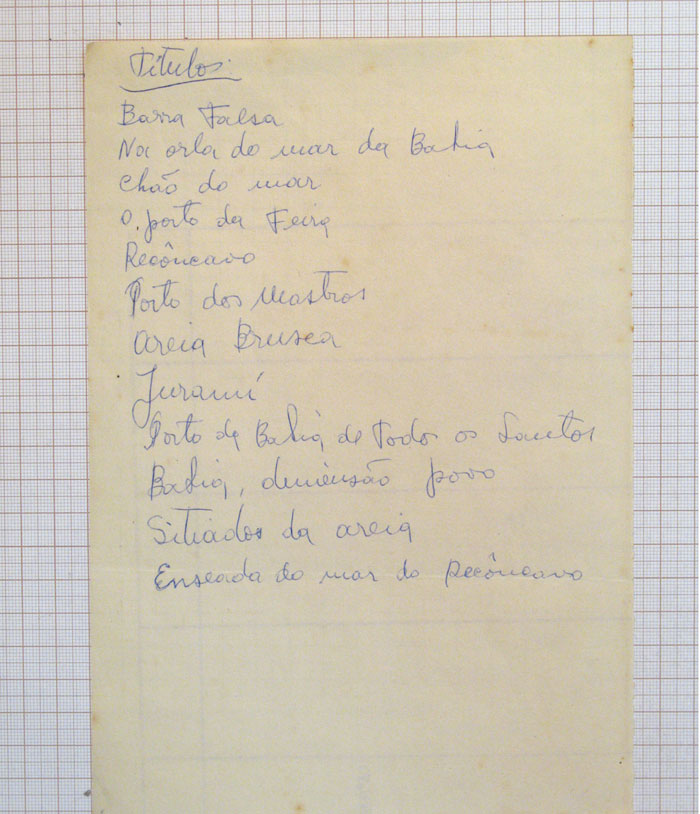 Títulos:
Barra Falsa
Na orla do mar da Bahia
Chão do mar
O porto da Feira
Recôncavo
Porto dos Mastros
Areia Brusca
Juramí
Porto da Bahia de Todos os Santos
Bahia, dimensão povo
Sitiados da areia
Enseada do mar do Recôncavo